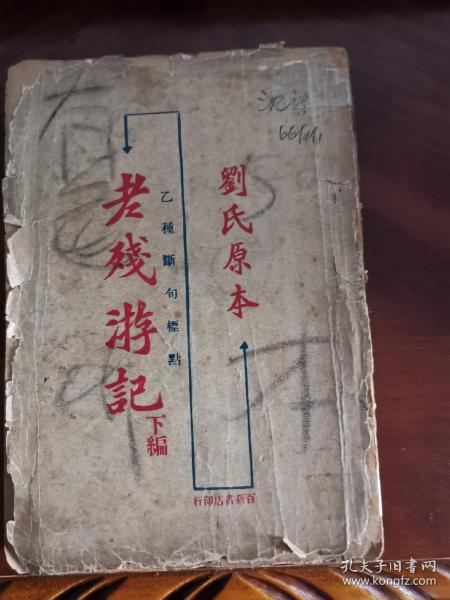 劉氏原本
乙種斷句標點
老殘游記
下編
百新書店印行
孔夫子旧书网
www.kongfz.com